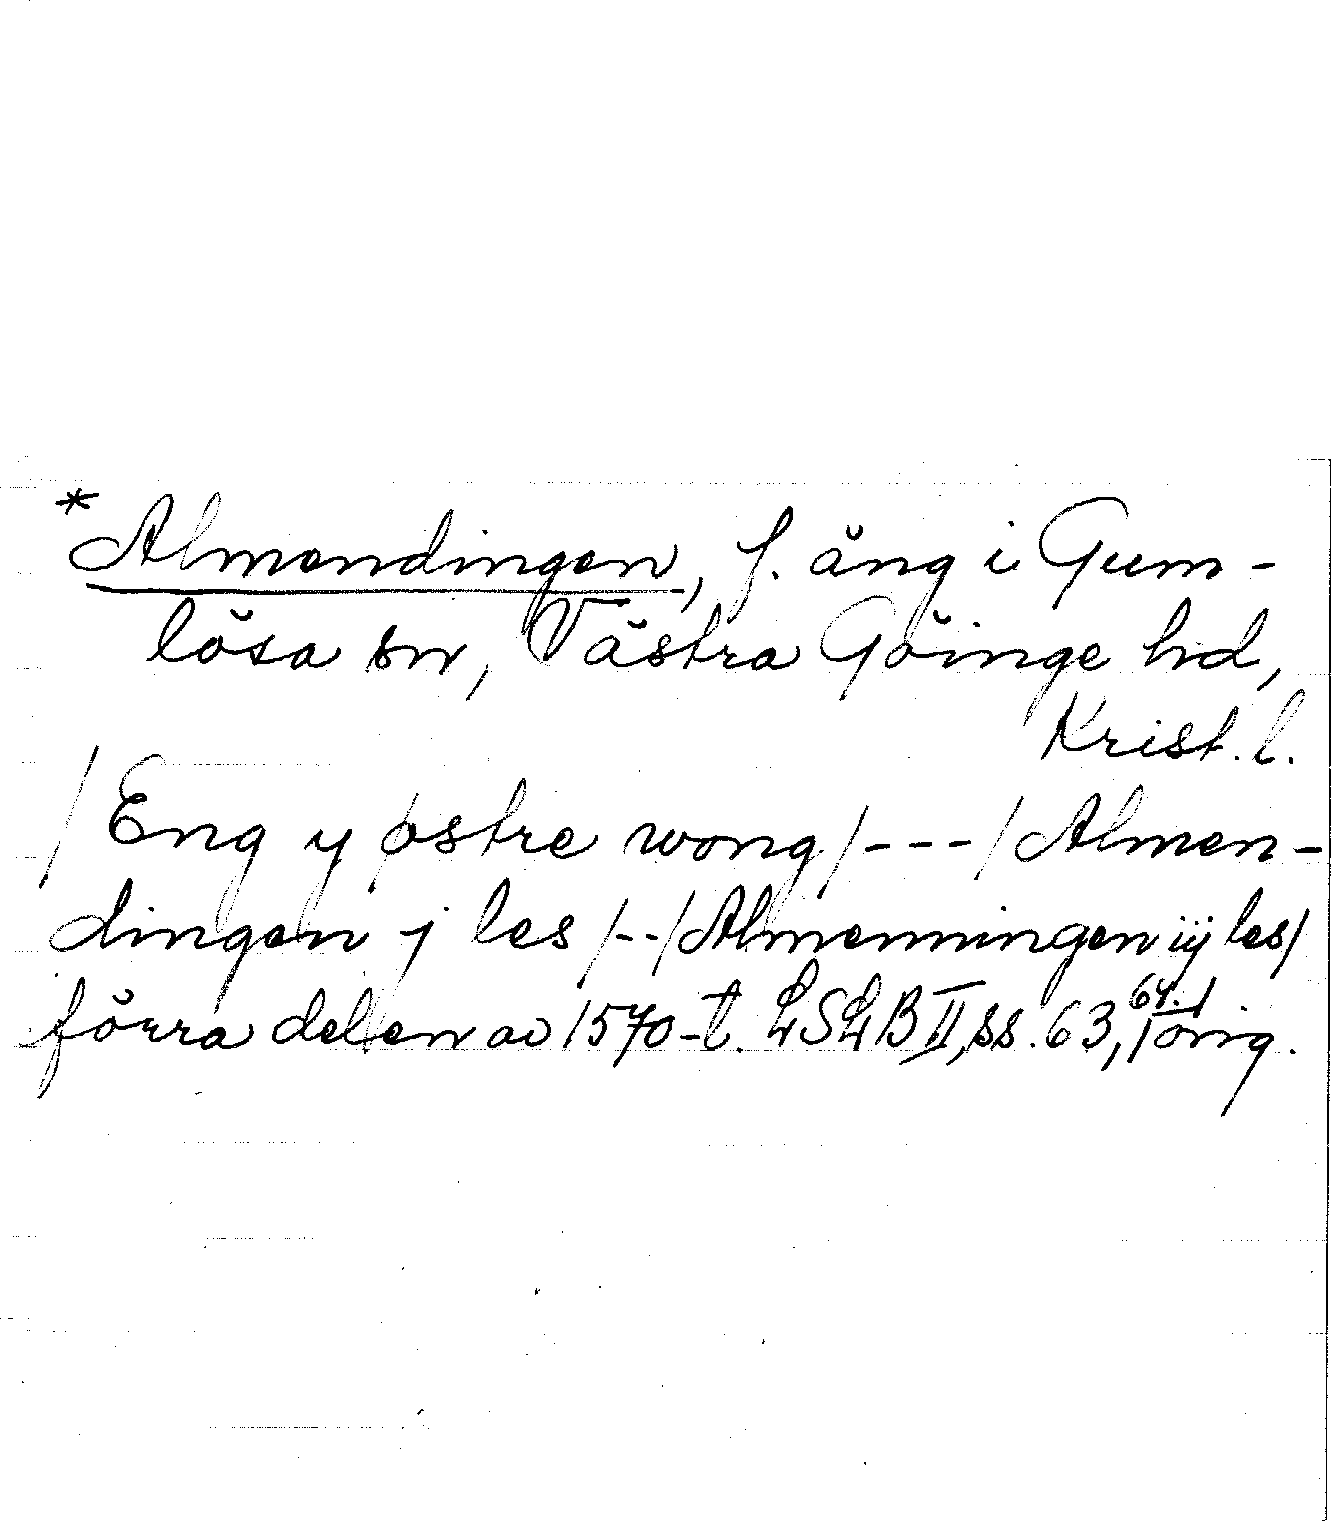 * Almendingen, f. äng i Gum-
lösa sn, Västra Göinge hd,
Krist. l.
/Eng y østre wong/---/Almen-
dingen j les/--/Almenningen iij les/
förra delen av 1570-t. LSLB II, ss. 63, 64. /orig.